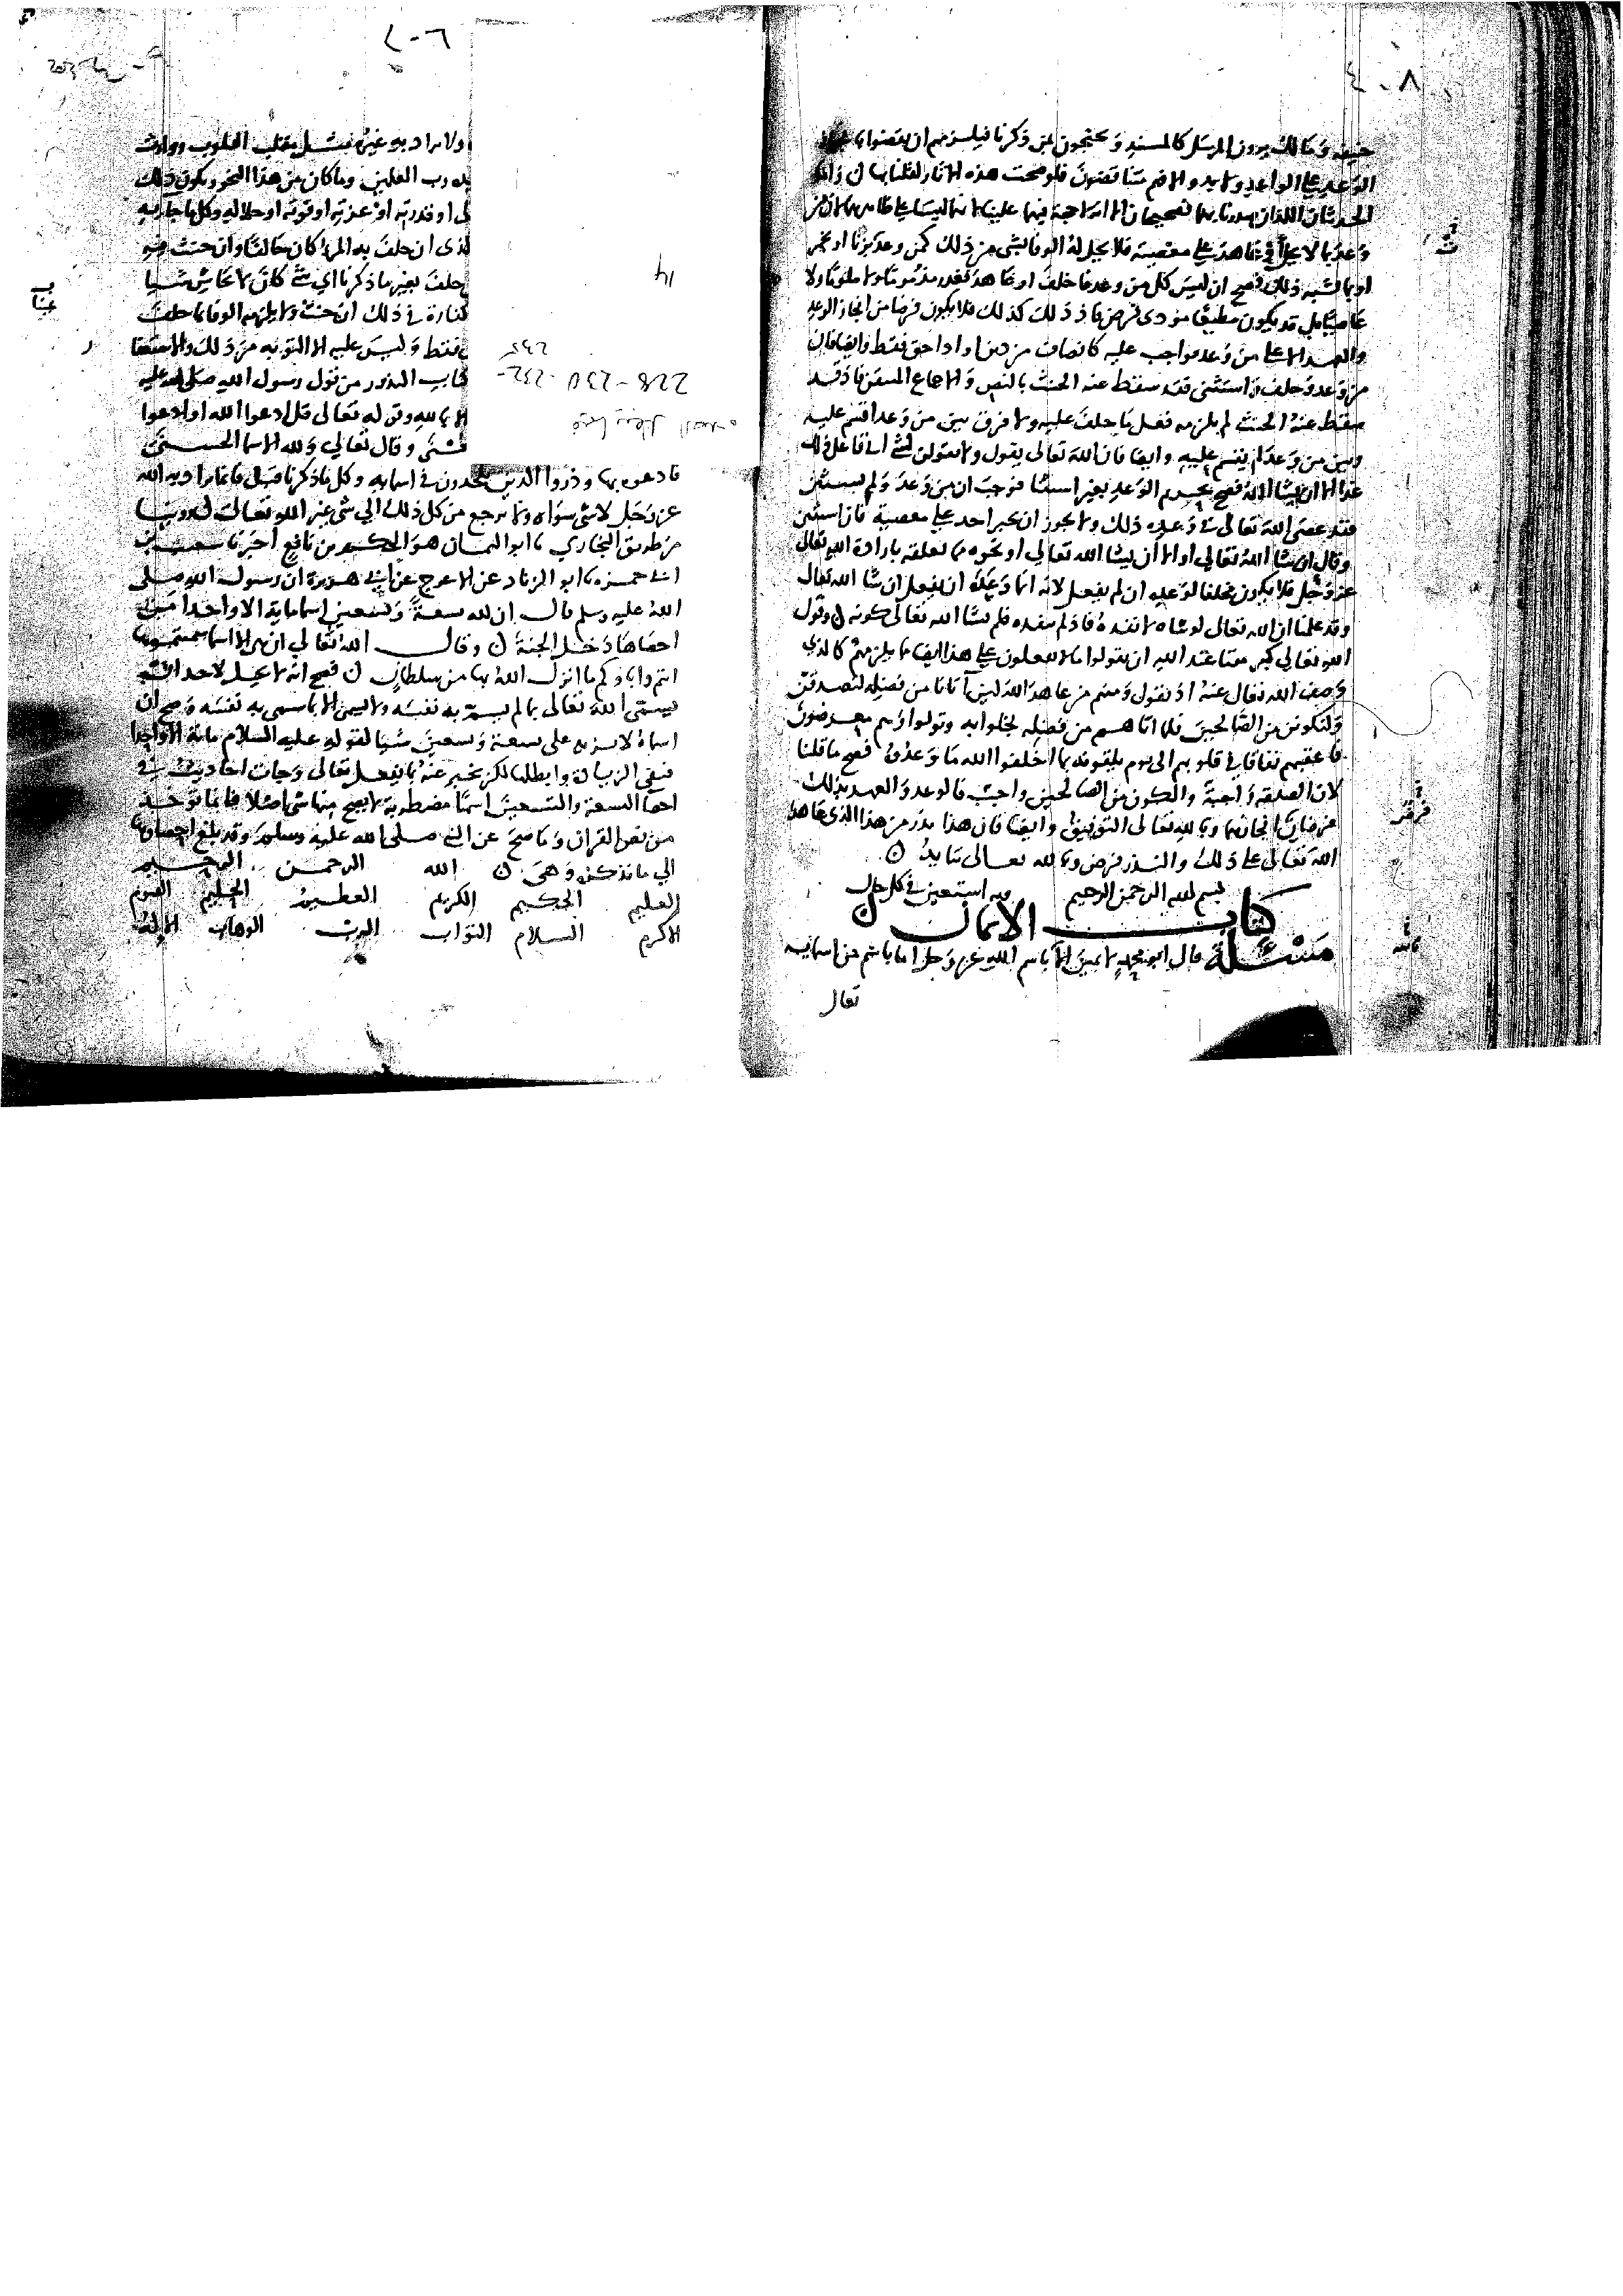 حنيفة ومالك يرون المرسل كالمسند ويحتجون بمن ذكرنا فيلزمهم ان يقضوا بانجاز
الوعد على الواعد ولا بد والا فهم متناقضون فلو صحت هذه الاثار لقلنا بها ن واما
الحديثان اللذان فصحيحان الا انه لا حجة فيهما علينا لانهما ليسا على ظاهرهما لان من
وعد بما لا يحل او عاهد على معصية فلا يحل له الوفا بشي من ذلك كمن وعد بزنا او بخمر
او بما اشبه ذلك فصح ان ليس كل من وعد فاخلف او عاهد فغدر مذموما ولا ملوما ولا
عاصيا بل قد يكون مطيعا مودى فرض فاذ ذلك كذلك فلا يكون فرضا من انجاز الوعد
والعهد الا على من وعد بواجب عليه كانصاف من دين او اداحق فقط وايضا فان
من وعد وحلف واستثنى فقد سقط عنه الحنث بالنص والاجماع المتيقن فاذ قد
سقط عنه الحنث لم يلزمه فعل ما حلف عليه ولا فرق بين من وعد اقسم عليه
وبين من وعد لم يقسم عليه وايضا فان الله تعالى يقول ولا تقولن لشي اني فاعل ذلك
غدا الا ان يشا الله فصح تحريم الوعد بغير استثنا فوجب ان من وعد ولم يستثن
فقد عصى الله تعالى في وعده ذلك ولا يجوز ان يجبر احد على معصية فان استثنى
وقال ان شا الله تعالى او الا ان يشا الله تعالى او نحوه مما يعلقه بارادة الله تعالى
عز وجل فلا يكون مخلفا لوعده ان لم يفعل لانه انما وعد ان يفعل ان شا الله تعالى
وقد علمنا ان الله تعالى لو شاه لانفذه فاذ لم ينفذه فلم يشا الله تعالى كونه ن وقول
الله تعالى كبر مقتا عند الله ان تقولوا ما لا تفعلون على هذا ايضا مما يلزمهم كالذي
وصف الله تعالى عنه اذ يقول ومنهم من عاهد الله لين آتانا من فضله لنصدقن
ولنكونن من الصالحين فلما اتاهم من فضله بخلوا به وتولوا وهم معرضون
فاعقبهم نفاقا في قلوبهم الى يوم يلقونه بما اخلفوا الله ما وعدوه فصح ما قلنا
لان الصدقة واجبة والكون من الصالحين واجب فالوعد والعهد بذلك
فرضان انجازهما وبالله تعالى التوفيق وايضا فان هذا نذر من هذا الذي عاهد
الله تعالى على ذلك والنذر فرض وبالله تعالى نتايد ن
بسم الله الرحمن الرحيم وبه استعين في كل حال
كتاب الايمان ن
مسئلة قال ابو محمد لا يمين الا باسم الله عز وجل اما باسم من اسمايه
تعالى
٢٠٦
ولا يراد به غيره مثل مقلب القلوب ووارث
يده رب العلمين وما كان من هذا النحو ويكون ذلك
او قدرته او عزته او قوته او جلاله وكل ما جا به
لذى ان حلف به المرء كان حالفا وان حنث فيه
حلف بغير ما ذكرنا اي شي كان لا نحاش شيا
كفارة في ذلك ان حنث ولا يلزمه الوفا بما حلف
فقط وليس عليه الا التوبه من ذلك والاستغفا
كتاب النذور من قول رسول الله صلى الله عليه
الا بالله وقوله تعالى قل ادعوا الله او ادعوا
وقال تعالى ولله الاسما الحسنى
فادعوه بها وذروا الذين يلحدون في اسمايه وكل ما ذكرنا قبل فانما يراد به الله
عز وجل لا شي سواه ولا يرجع من كل ذلك الى شي غير الله تعالى ن روينا
من طريق البخاري نا ابو اليمان هو الحكم بن نافع اخبرنا شعيب بن
ابي حمزه نا ابو الزناد عن الاعرج عن ابي هريرة ان رسول الله صلى
الله عليه وسلم قال ان لله تسعة وتسعين اسما ماية الا واحدا من
احصاها دخل الجنة ن وقال الله تعالى ان هي الا اسما سميتموها
انتم واباوكم ما انزل الله بها من سلطان ن فصح انه لا يحل لاحد ان
يسمى الله تعالى بما لم يسم به نفسه ولا يمين الا بما سمى به نفسه وصح ان
اسماه لا تزيد على تسعة وتسعين شيا لقوله عليه السلام ماية الا واحدا
فنفى الزيادة وابطلها لكن يخبر عنه بما يفعل تعالى وجات احاديث في
احصا التسعة والتسعين اسما مضطربة لا يصح منها شي اصلا فانما توخذ
من نص القران وما صح عن النبي صلى الله عليه وسلم وقد بلغ احصاونا
الى ما نذكره وهي ن الله الرحمن الرحيم
العليم الحكيم الكريم العظيم الحليم القيوم
الاكرم السلام التواب الرب الوهاب الاله
228-230-232-